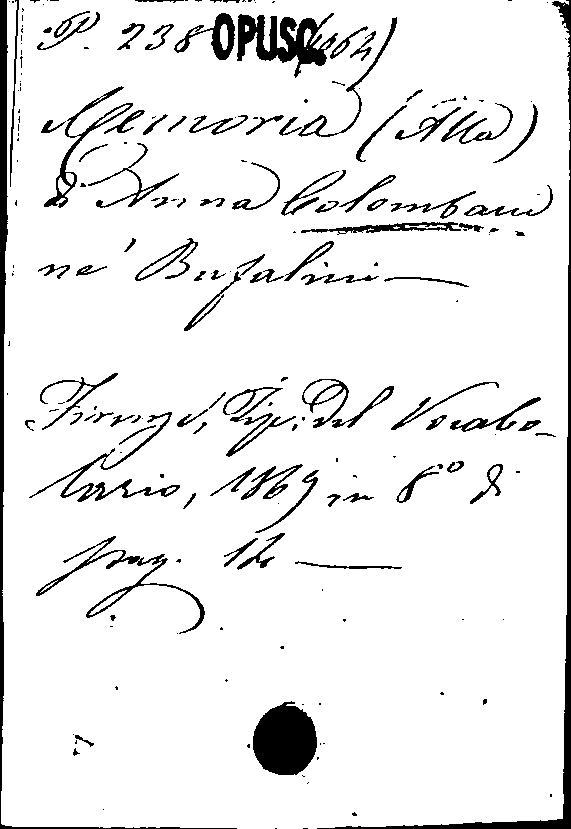 P. 238 OPUSC.
Memoria (Alla)
di Anna Colombani
ne' Bufalini —
Firenze, Tip: del Vocabo-
lario, 1869 in 8° di
pag. 12 —